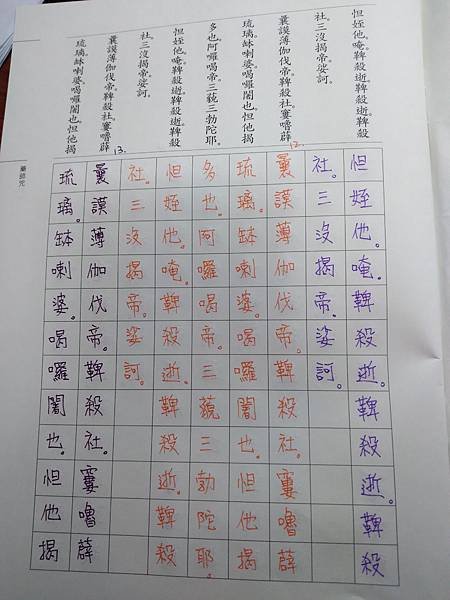 怛姪他。唵。鞞殺逝。鞞殺逝。鞞殺
社。三沒揭帝。娑訶。
曩謨薄伽伐帝。鞞殺社。窶嚕薜
琉璃。缽喇婆喝囉闍也。怛他揭
多也。阿囉喝帝。三藐三勃陀耶。
怛姪他。唵。鞞殺逝。鞞殺逝。鞞殺
社。三沒揭帝。娑訶。
曩謨薄伽伐帝。鞞殺社。窶嚕薜
琉璃。缽喇婆喝囉闍也。怛他揭
藥師咒
怛姪他。唵。鞞殺逝。鞞殺逝。鞞殺
社。三沒揭帝。娑訶。
12.
曩謨薄伽伐帝。鞞殺社。窶嚕薜
琉璃。缽喇婆。喝囉闍也。怛他揭
多也。阿囉喝帝。三藐三勃陀耶。
怛姪他。唵。鞞殺逝。鞞殺逝。鞞殺
社。三沒揭帝。娑訶。
13.
曩謨薄伽伐帝。鞞殺社。窶嚕薜
琉璃。缽喇婆。喝囉闍也。怛他揭